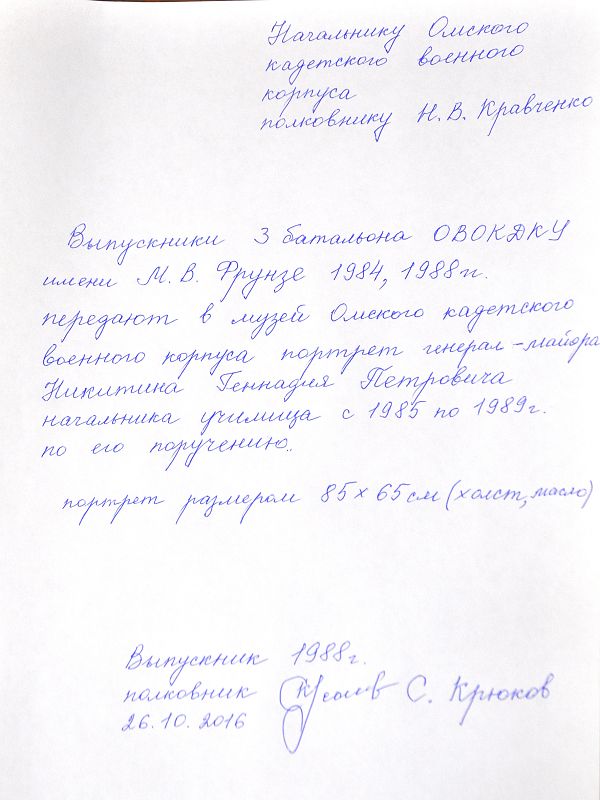 Начальнику Омского
кадетского военного
корпуса
полковнику Н.В. Кравченко
Выпускники 3 батальона ОВОКДКУ
имени М.В. Фрунзе 1984, 1988гг.
передают в музей Омского кадетского
военного корпуса портрет генерал-майора
Никитина Геннадия Петровича
начальника училища с 1985 по 1989г.
по его поручению.
портрет размером 85×65см (холст, масло)
Выпускник 1988г.
полковник С. Крюков
26.10.2016